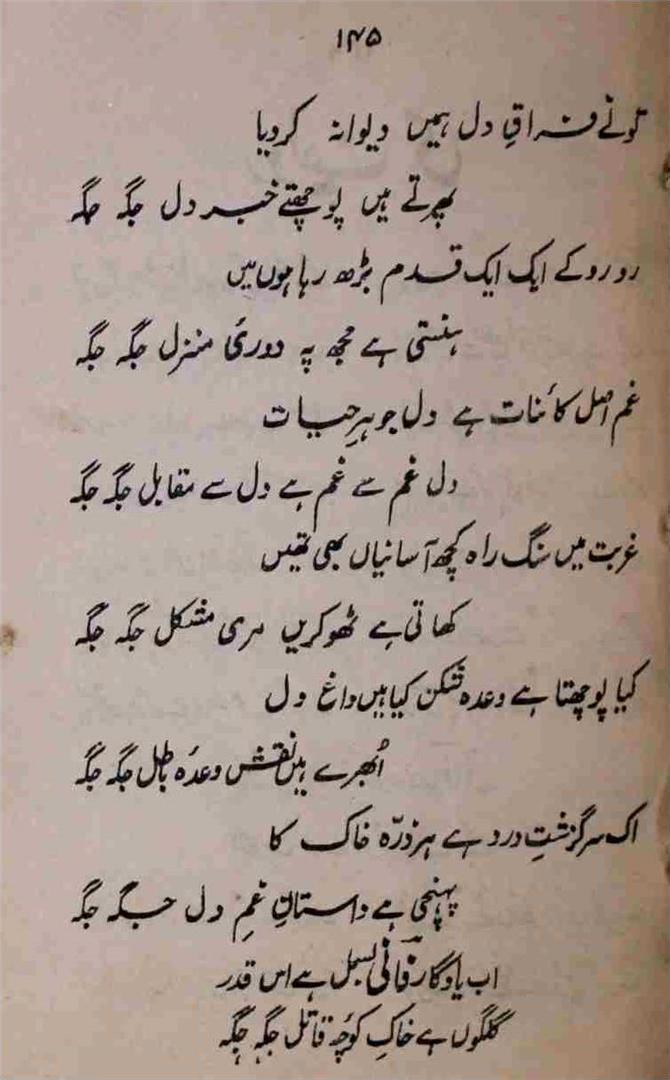 ۱۴۵
تونے فراقِ دل ہمیں دیوانہ کردیا
پھرتے ہیں پوچھتے خبر دل جگہ جگہ
رو رو کے ایک ایک قدم بڑھ رہا ہوں میں
ہنستی ہے مجھ پہ دوریٔ منزل جگہ جگہ
غم اصل کائنات ہے دل جوہرِ حیات
دل غم سے غم ہے دل سے مقابل جگہ جگہ
غربت میں سنگ راہ کچھ آسانیاں بھی تھیں
کھاتی ہے ٹھوکریں مری مشکل جگہ جگہ
کیا پوچھتا ہے وعدہ شکن کیا ہیں داغ دل
اُبھرے ہیں نقش وعدۂ باطل جگہ جگہ
اک سرگزشتِ درد ہے ہر ذرّہ خاک کا
پہنچی ہے داستانِ غمِ دل جگہ جگہ
اب یادگار فانیؔ بسمل ہے اس قدر
گلگوں ہے خاکِ کوچۂ قاتل جگہ جگہ